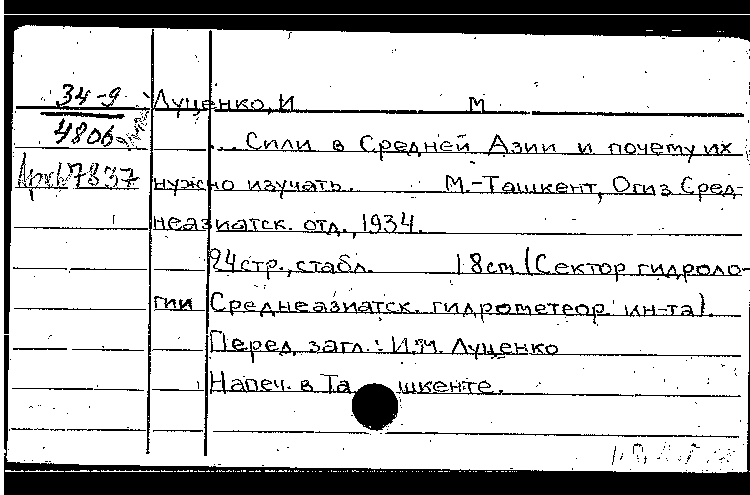 34-9
4806
7837
Луценко, И М
... Сили в Средней Азии и почему их
нужно изучать. М.-Ташкент, Огиз Сред-
неазиатск. отд., 1934.
24 стр., стабл. 18 cm (Сектор гидроло-
гии Среднеазиатск. гидрометеор. ин-та).
Перед загл.: И.М. Луценко
Напеч. в Ташкенте.